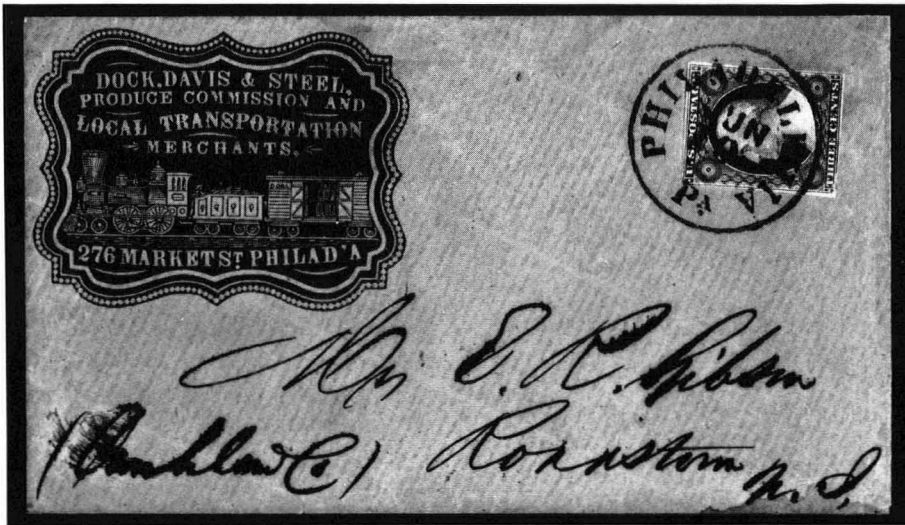 DOCK, DAVIS & STEEL,
PRODUCE COMMISSION AND
LOCAL TRANSPORTATION
MERCHANTS.
276 MARKET ST PHILAD'A
PHILADELPHIA Pa
JUN
U.S. POSTAGE
THREE CENTS
E. R. Gibson
Roadstown
N. J.